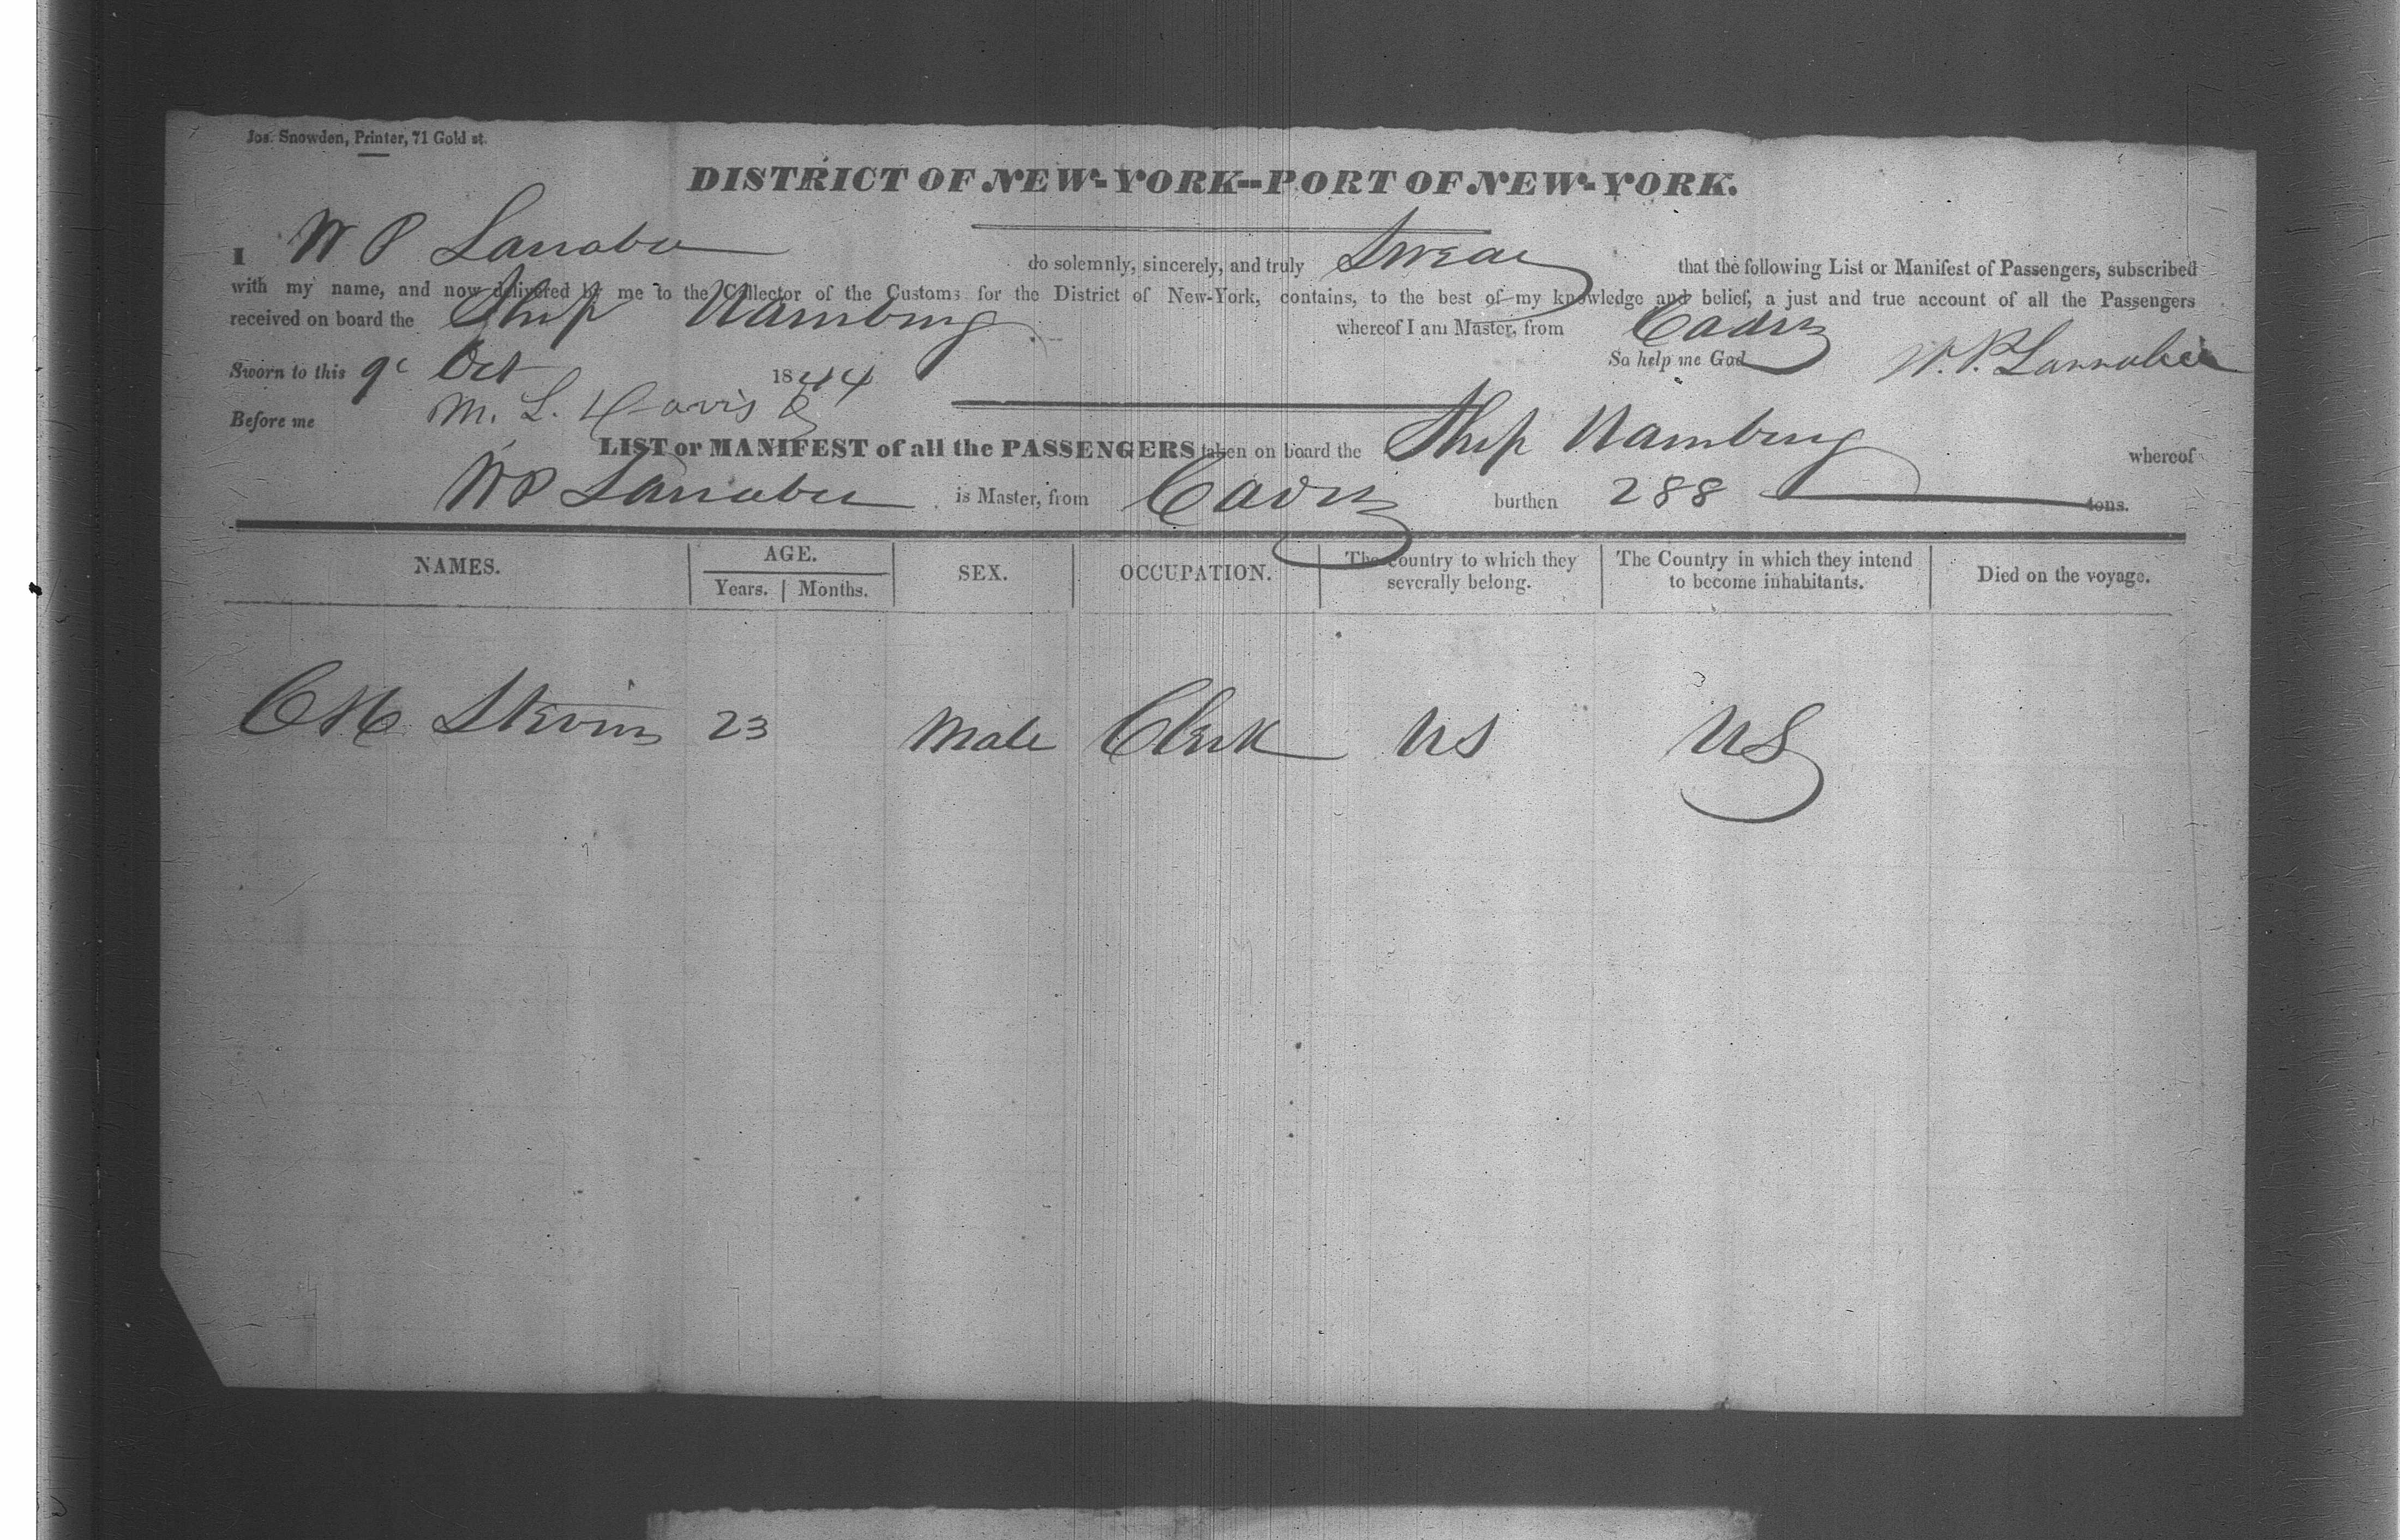 Jos. Snowden, Printer, 71 Gold st.
DISTRICT OF NEW-YORK--PORT OF NEW-YORK.
I W P Larrabee do solemnly, sincerely, and truly Swear that the following List or Manifest of Passengers, subscribed
with my name, and now delivered by me to the Collector of the Customs for the District of New-York, contains, to the best of my knowledge and belief, a just and true account of all the Passengers
received on board the Ship Hamburg whereof I am Master, from Cadiz
So help me God W. P. Larrabee
Sworn to this 9 Oct 1844
Before me M. L. Davis
LIST or MANIFEST of all the PASSENGERS taken on board the Ship Hamburg whereof
W P Larrabee is Master, from Cadiz burthen 288 tons.
NAMES. AGE. Years. Months. SEX. OCCUPATION. The Country to which they severally belong. The Country in which they intend to become inhabitants. Died on the voyage.
C H Stevens 23 Male Clerk US US